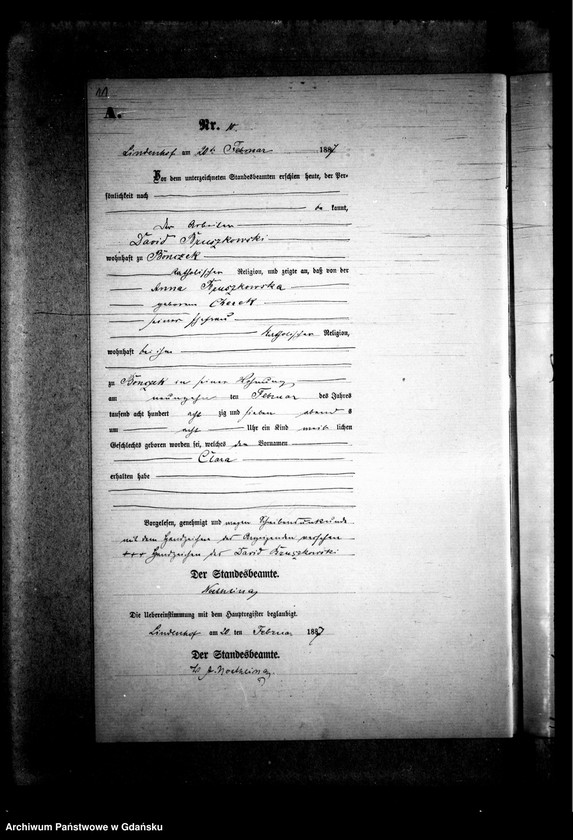 11
A.
Nr. 11.
Lindenhof am 20ten Februar 1887
Vor dem unterzeichneten Standesbeamten erschien heute, der Per-
sönlichkeit nach
be kannt,
Der Arbeiter
David
wohnhaft zu Bonczek
katholischer Religion, und zeigte an, daß von der
Anna
geborene
seiner Ehefrau
katholischer Religion,
wohnhaft bei ihm
zu Bonczek in seiner Wohnung
am neunzehn ten Februar des Jahres
tausend acht hundert acht zig und sieben abend s
um acht Uhr ein Kind weib lichen
Geschlechts geboren worden sei, welches den Vornamen
Clara
erhalten habe
Vorgelesen, genehmigt und wegen Schreibensunkunde
mit dem Handzeichen des Anzeigenden versehen
+++ Handzeichen des David
Der Standesbeamte.
Die Uebereinstimmung mit dem Hauptregister beglaubigt.
Lindenhof am 20 ten Februar 1887
Der Standesbeamte.
Archiwum Państwowe w Gdańsku